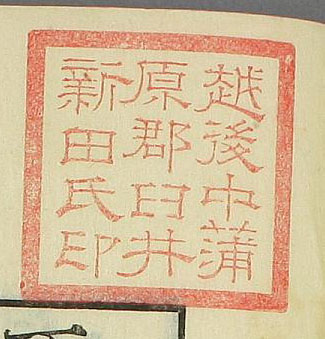 越後中蒲
原郡臼井
新田氏印